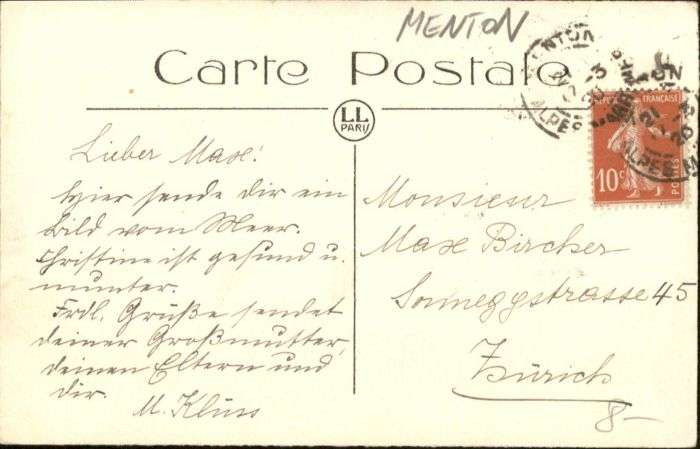 MENTON
Carte Postale
LL
PARIS
Lieber Max!
Hier sende dir ein
Bild vom Meer.
Christine ist gesund u.
munter.
Frdl. Grüße sendet
deiner Großmutter,
deinen Eltern und
dir.
M. Klüss
Monsieur
Max Bircher
Sonneggstrasse 45
Zürich
8-
MENTON
ALPES
FRANÇAISE
10c
POSTES